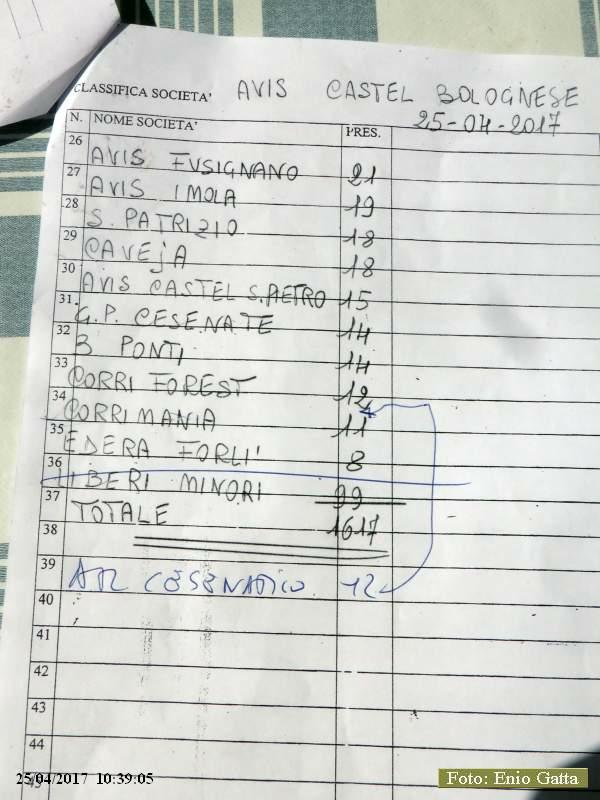 CLASSIFICA SOCIETA' AVIS CASTEL BOLOGNESE
N. NOME SOCIETA' PRES. 25-04-2017
26 AVIS FUSIGNANO 21
27 AVIS IMOLA 19
28 S. PATRIZIO 18
29 CAVEJA 18
30 AVIS CASTEL S. PIETRO 15
31 G.P. CESENATE 14
32 3 PONTI 14
33 CORRI FOREST 12
34 CORRIMANIA 11
35 EDERA FORLI' 8
36 LIBERI MINORI 99
37 TOTALE 1617
38
39 ATL CESENATICO 12
40
41
42
43
44
45
25/04/2017 10:39:05
Foto: Enio Gatta